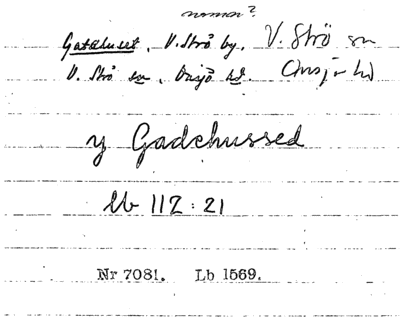 noman?
Gatehuset, V. Strö by, V. Strö sn
V. Strö sn, Onsjö hd. Onsjö hd
y Gadehussed
lb 112:21
Nr 7081. Lb 1569.